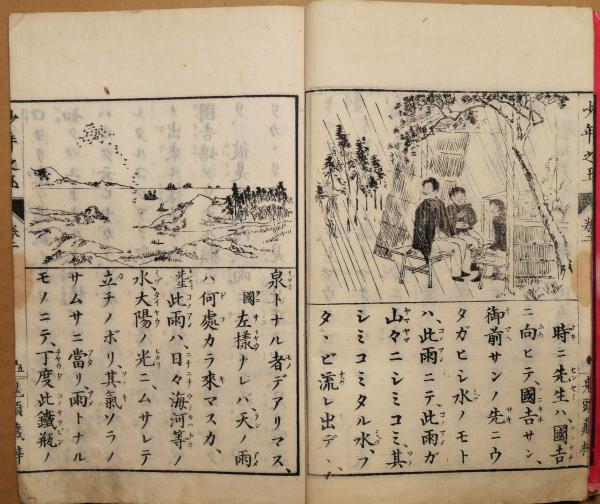 時ニ先生ハ、國吉
ニ向ヒテ、國吉サン、
御前サンノ先ニウ
タガヒシ水ノモト
ハ、此雨ニテ、此雨ガ
山々ニシミコミ、其
シミコミタル水、フ
タヽビ流レ出デ、
泉トナル者デアリマス、
國左樣ナレバ天ノ雨
ハ何處カラ來マスカ、
此雨ハ、日々海河等ノ
水大陽ノ光ニ、ムサレテ
立チノボリ、其氣ソラノ
サムサニ當リ、雨トナル
モノニテ、丁度此鐵瓶ノ